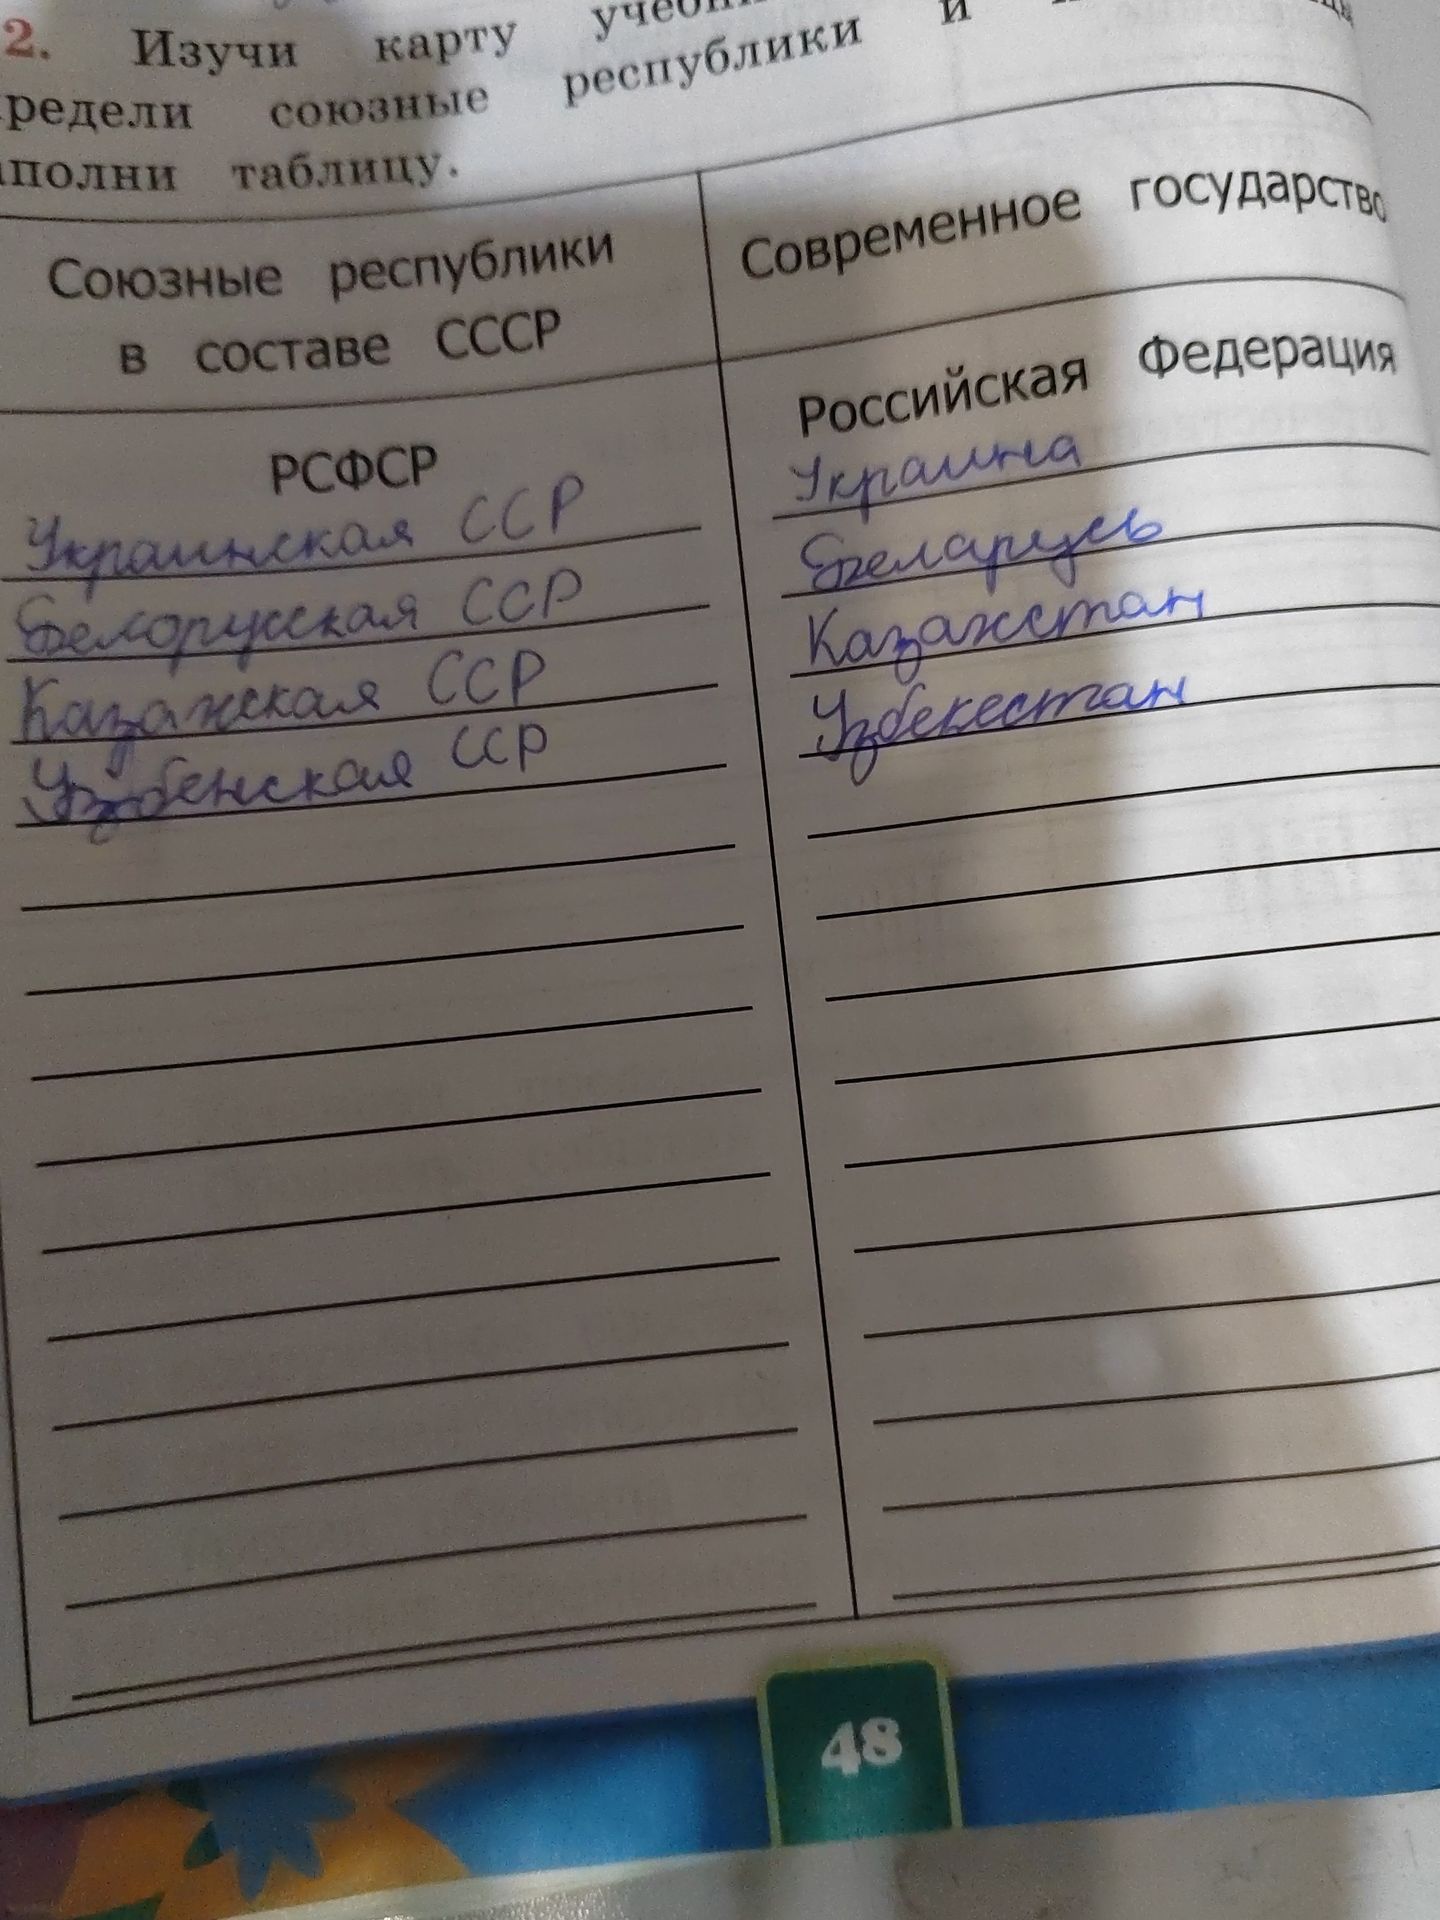 2. Изучи карту
редели союзные республики и
полни таблицу.
Союзные республики
в составе СССР
Современное государство
РСФСР
Российская Федерация
Украинская ССР
Украина
Белорусская ССР
Беларусь
Казахская ССР
Казахстан
Узбенская ССР
Узбекестан
48